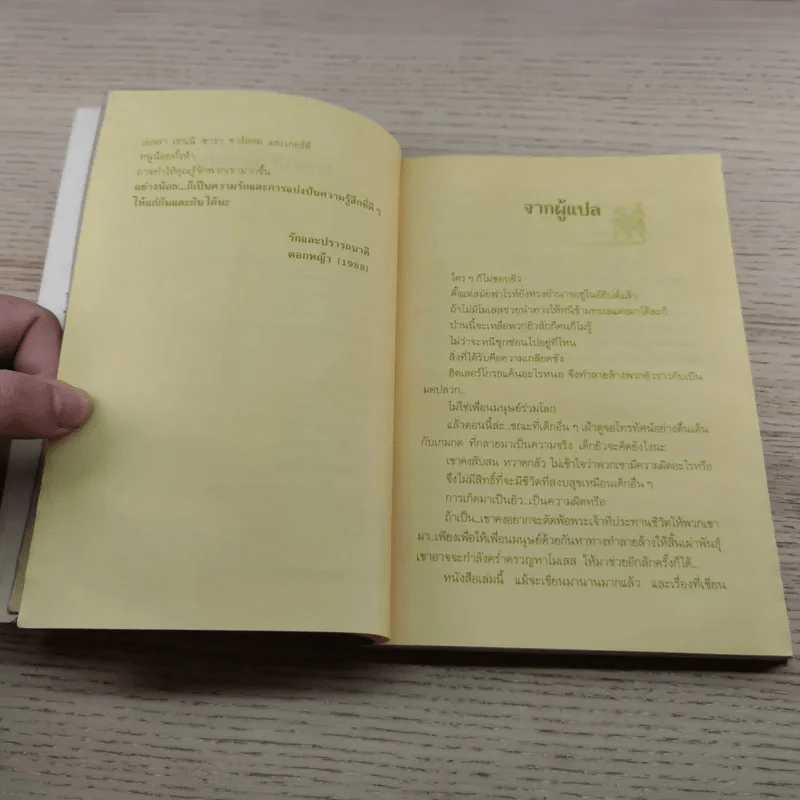 เอลลา เฮนนี ซารา ชาร์ลอต และเกอร์ตี
หนูน้อยทั้งห้า
อาจทำให้คุณรู้จักพวกเขามากขึ้น
อย่างน้อย...ก็เป็นความรักและการแบ่งปันความรู้สึกที่ดี ๆ
ให้แก่กันและกันได้นะ
รักและปรารถนาดี
ดอกหญ้า (1988)
จากผู้แปล
ใคร ๆ ก็ไม่ชอบยิว
ตั้งแต่สมัยฟาโรห์ยังทรงอำนาจอยู่ในอียิปต์แล้ว
ถ้าไม่มีโมเสสช่วยนำทางให้หนีข้ามทะเลแดงมาได้ละก็
ป่านนี้จะเหลือพวกยิวสักกี่คนก็ไม่รู้
ไม่ว่าจะหนีซุกซ่อนไปอยู่ที่ไหน
สิ่งที่ได้รับคือความเกลียดชัง
ฮิตเลอร์โกรธแค้นอะไรหนอ จึงทำลายล้างพวกยิวราวกับเป็น
มดปลวก...
ไม่ใช่เพื่อนมนุษย์ร่วมโลก
แล้วตอนนี้ล่ะ...ขณะที่เด็กอื่น ๆ เฝ้าดูจอโทรทัศน์อย่างตื่นเต้น
กับเกมกด ที่กลายมาเป็นความจริง เด็กยิวจะคิดยังไงนะ
เขาคงสับสน หวาดกลัว ไม่เข้าใจว่าพวกเขามีความผิดอะไรหรือ
จึงไม่มีสิทธิ์ที่จะมีชีวิตที่สงบสุขเหมือนเด็กอื่น ๆ
การเกิดมาเป็นยิว...เป็นความผิดหรือ
ถ้าเป็น...เขาคงอยากจะตัดพ้อพระเจ้าที่ประทานชีวิตให้พวกเขา
มา...เพียงเพื่อให้เพื่อนมนุษย์ด้วยกันหาทางทำลายล้างให้สิ้นเผ่าพันธุ์
เขาอาจจะกำลังคร่ำครวญหาโมเสส ให้มาช่วยอีกสักครั้งก็ได้...
หนังสือเล่มนี้ แม้จะเขียนมานานมากแล้ว และเรื่องที่เขียน